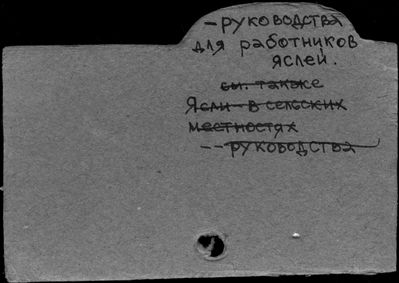 - руководства
для работников
яслей.
см. также
Ясли - в сельских
местностях
-- руководства